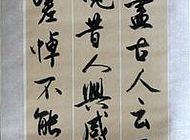 盡古人云
覽昔人興感
嗟悼不能